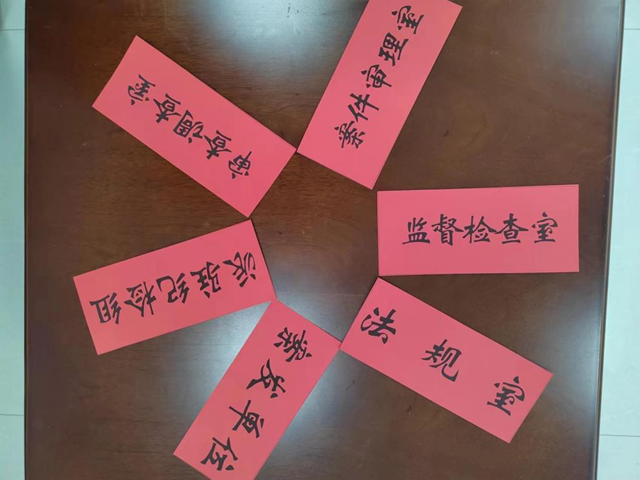 案件审理室
监督检查室
法规室
案发单位
派驻纪检组
审查调查室